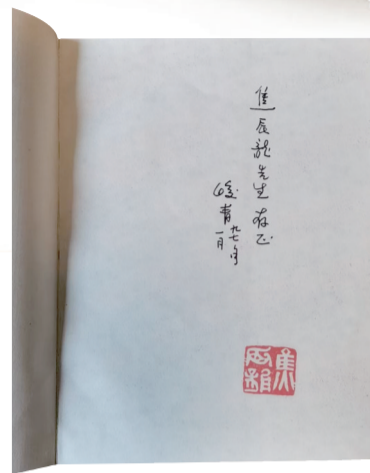 焦辰龙先生存正
峻青
九七年
一月